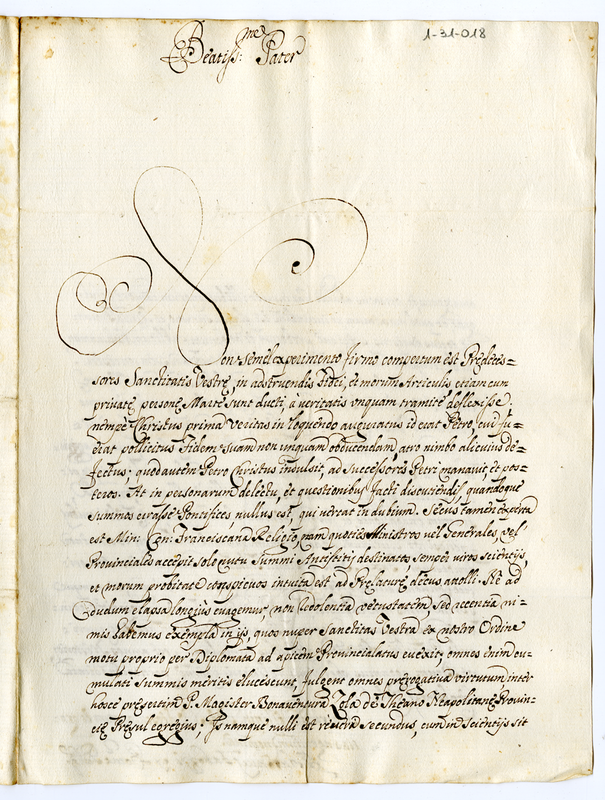 1-31-018
Beatiss:me Pater
Non semel experimento firmo compertum est Prędeces=
sores Sanctitatis Vestrę, in adstruendis Fidei, et morum Articulis etiam cum
privatę personę Marte sunt ducti, à veritatis unquam tramite deflexisse
nempè Christus prima Veritas in loquendo auguratus id erat Petro, cui fu=
erat pollicitus Fidem suam non unquam obducendam atro nimbo alicuius de=
fectus: quod autem Petro Christus indulsit, ad successores Petri manavit, et pos=
teros. At in personarum delectu, et questionibus facti discutiendis, quandoque
summos errasse Pontifices, nullus est, qui vercat in dubium. Secus tamèn experta
est Min: Con: Franciscana Religio, nam quoties Ministros vèl Generales, vel
Provinciales accèpit solo nutu summi Antistitis destinatos sempèr viros scientijs,
et morum probitate conspicuos intuita est ad Pręlaturę decus attolli. Nè ad
dudum elapsa longius evagemur, non redolentia vetustatem, sed recentia ni=
mis habemus exempla in ijs, quos nuper Sanctitas Vestra ex nostro Ordine
motu proprio per Diplomata ad apicem Provincialatus evexit; omnes enim cu=
mulati summis meritis elucescunt, fulgent omnes prerogativa virtutum inter
hosce presertim P. Magister Bonaventura Zola de Theano Neapolitanę Provin=
cię Pręsul egregius, Ipse namque nulli est revera secundus, cum in scientijs sit